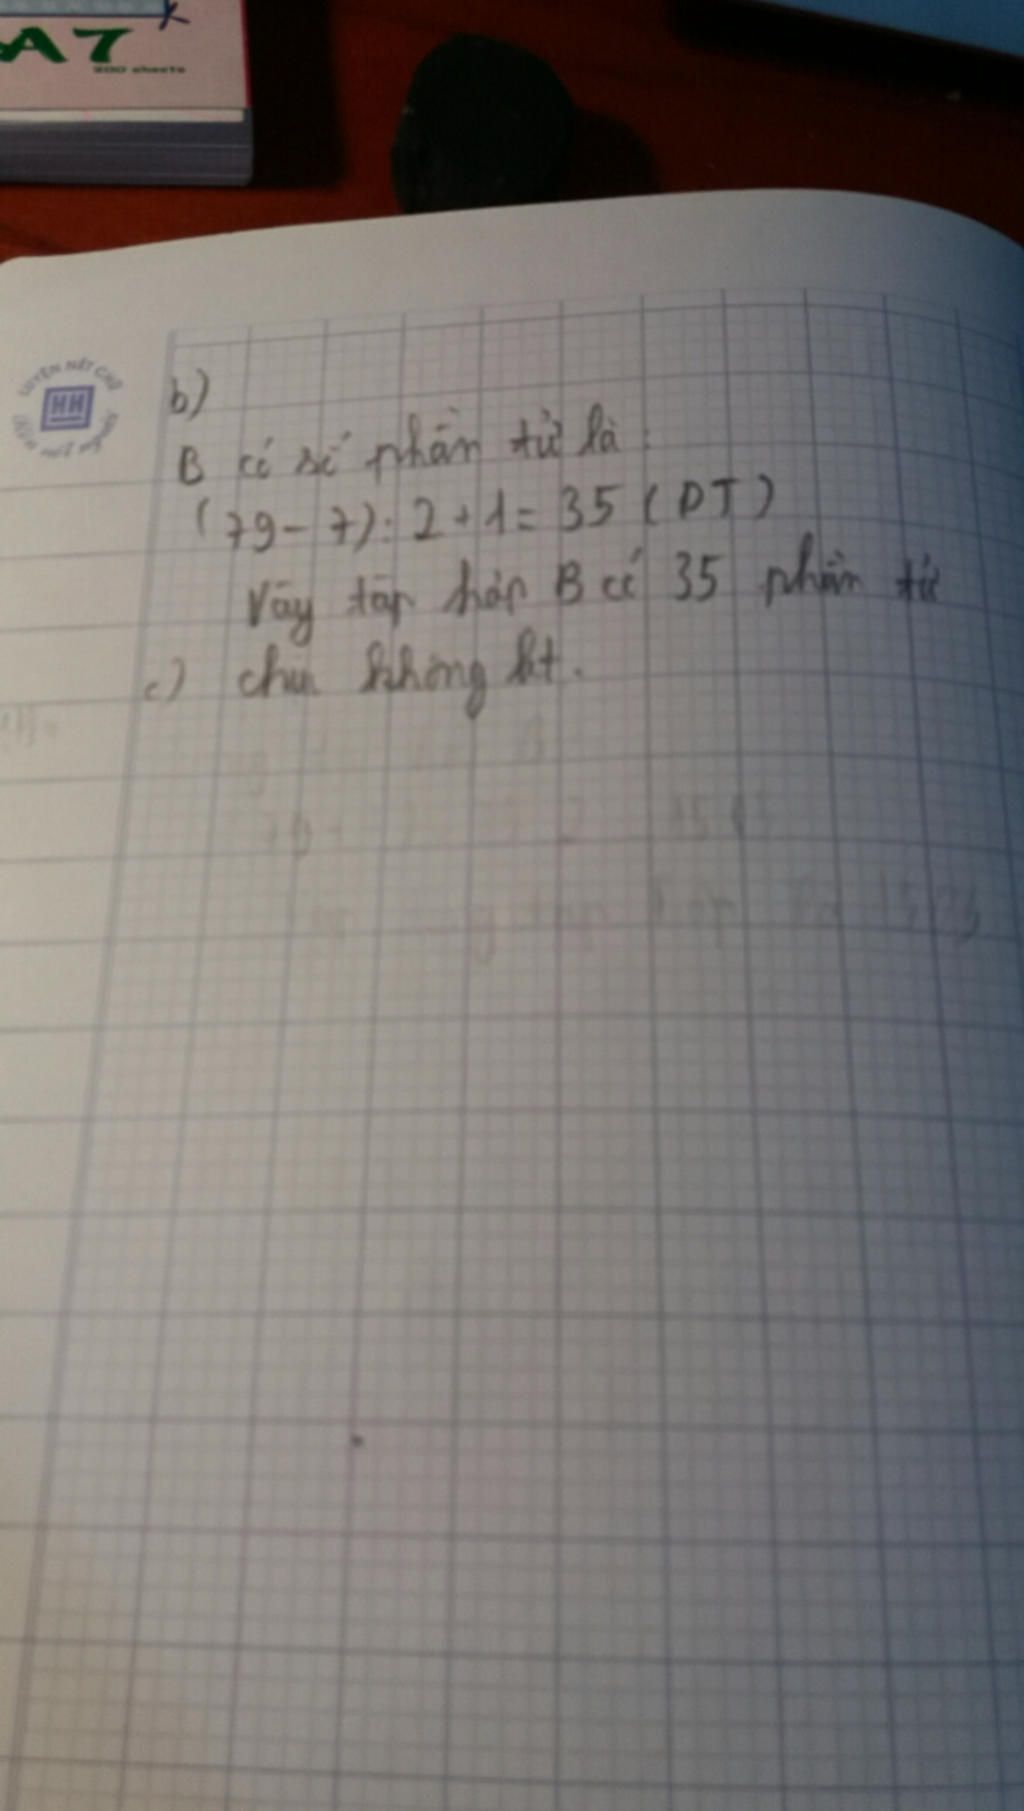 A7
200 sheets
LUYỆN NÉT CHỮ
HH
b)
B có số phần tử là:
(79-7):2+1=35(PT)
Vậy tập hợp B có 35 phần tử
c) chịu không bt.